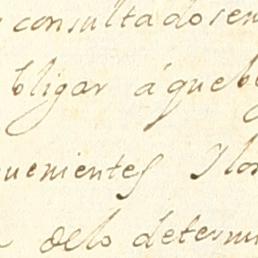 consultado sen
bligar áqueb
uenientes Ilos
delo determi